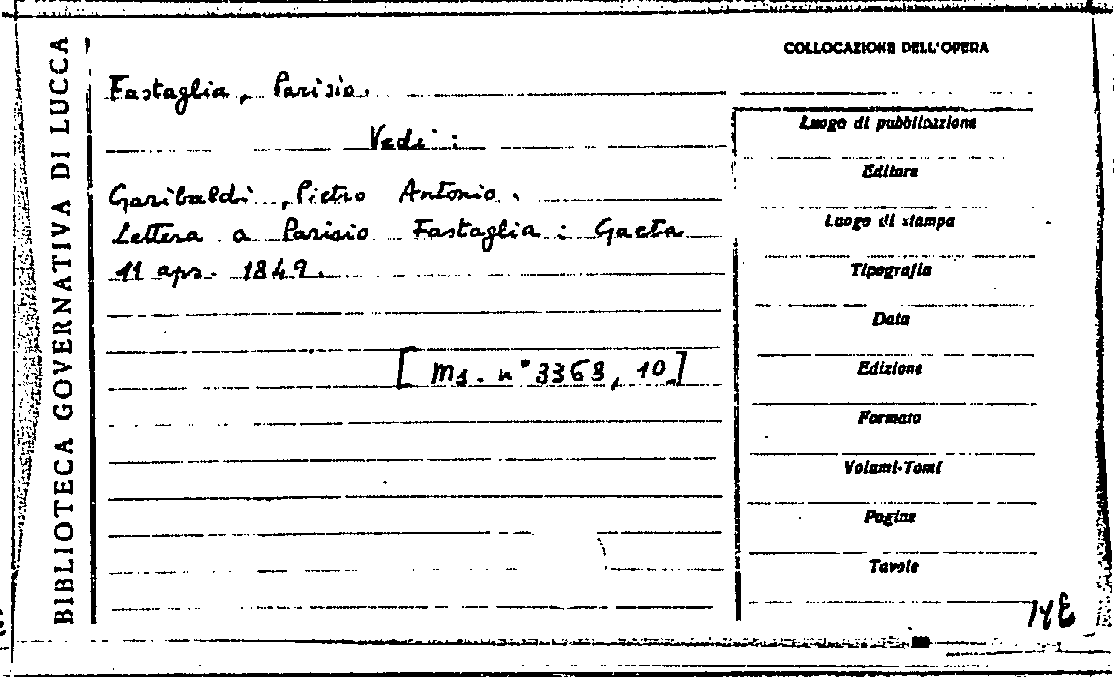 BIBLIOTECA GOVERNATIVA DI LUCCA
Fastaglia, Parisio.
Vedi:
Garibaldi, Pietro Antonio.
Lettera a Parisio Fastaglia: Gaeta
11 apr. 1849.
[Ms. n° 3368, 10]
COLLOCAZIONE DELL'OPERA
Luogo di pubblicazione
Editore
Luogo di stampa
Tipografia
Data
Edizione
Formato
Volumi-Tomi
Pagine
Tavole